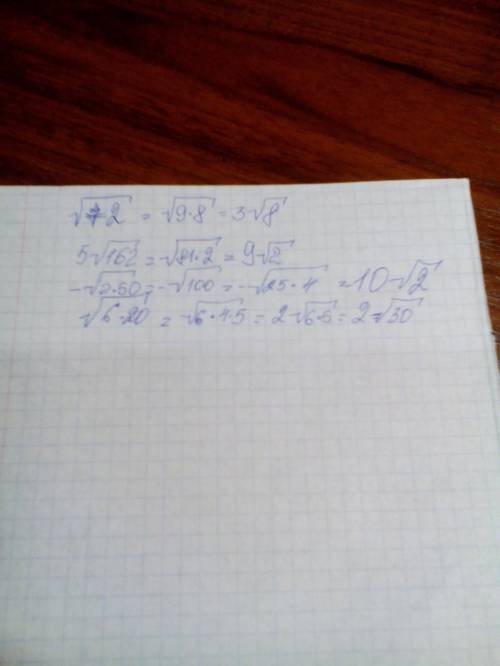 √72 = √9·8 = 3√8
5√162 = √81·2 = 9√2
-√2·50 = -√100 = -√25·4 = 10√2
√6·20 = √6·4·5 = 2√6·5 = 2√30